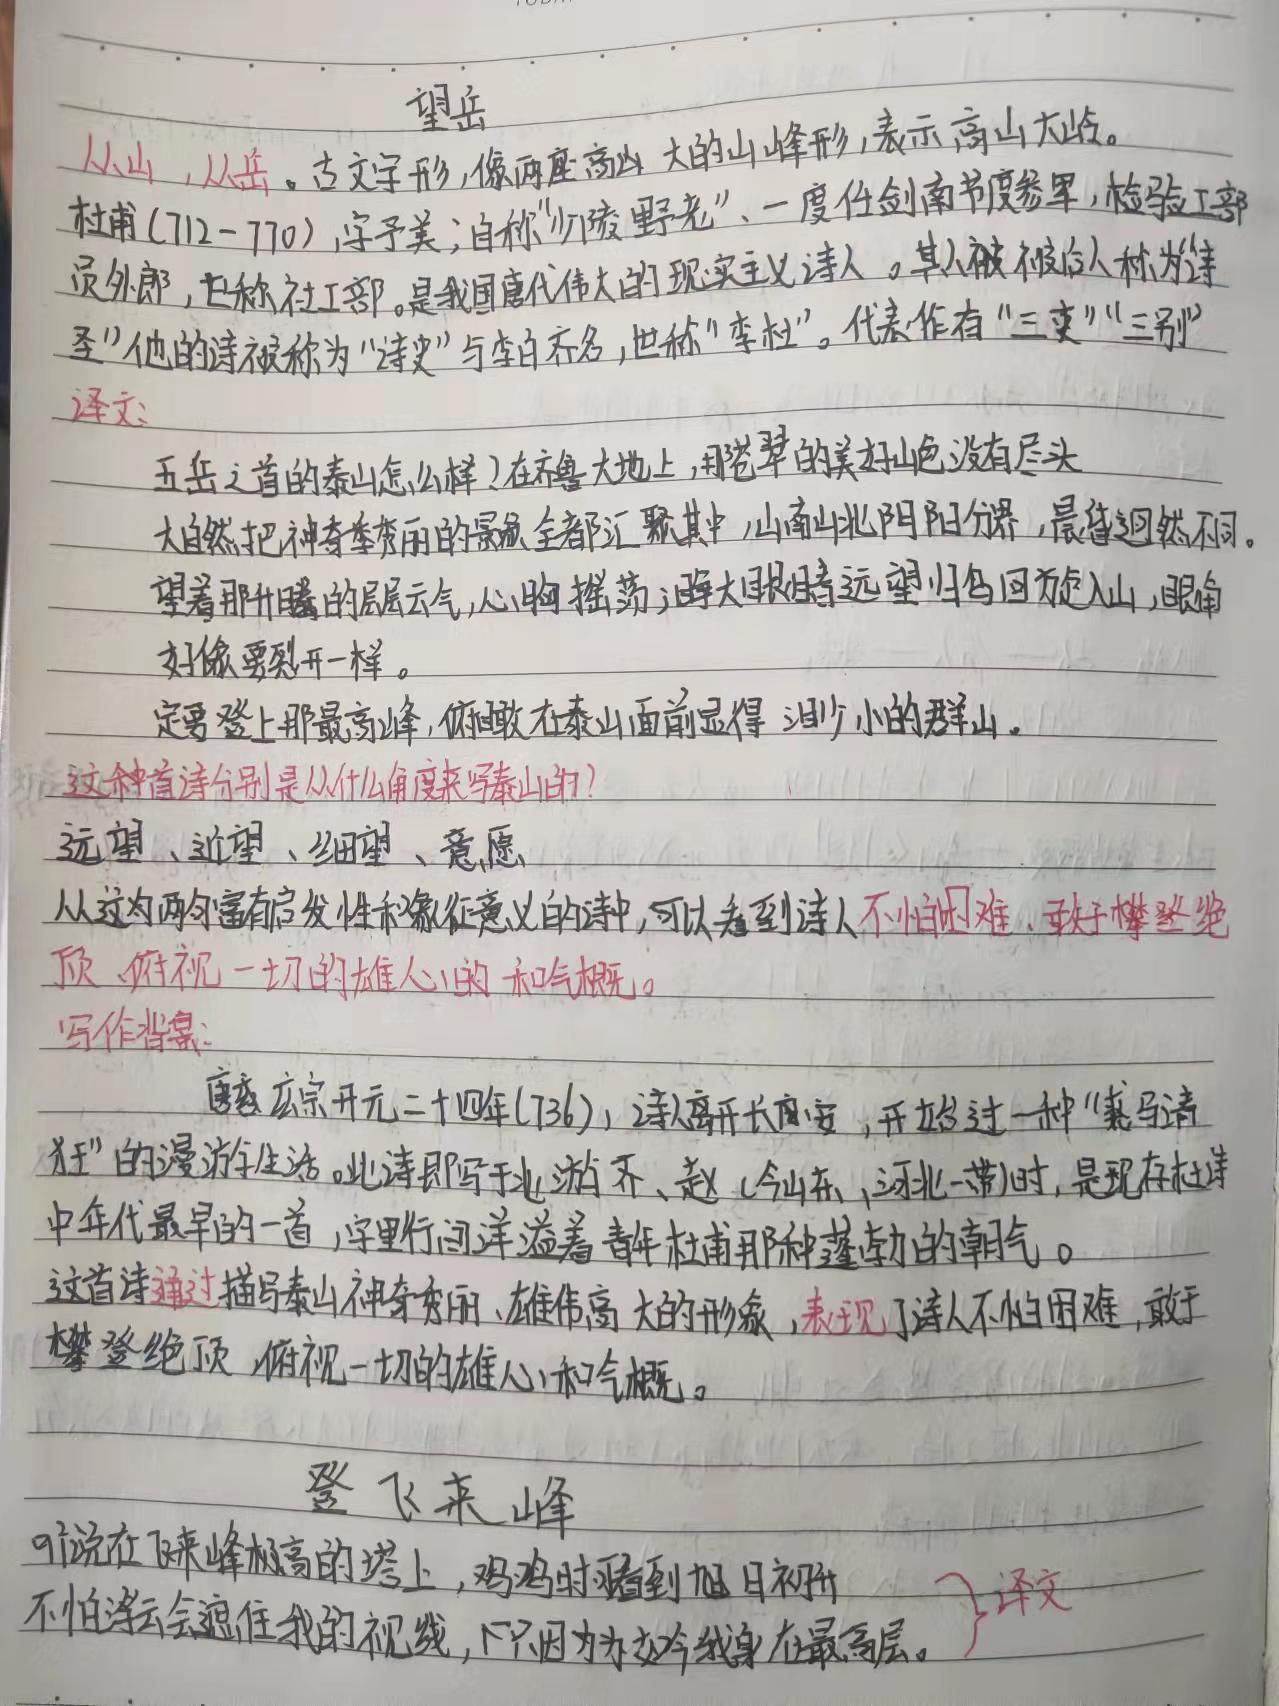 望岳
从山，从岳。古文字形，像两座高山 大的山峰形，表示高山大岭。
杜甫（712-770），字子美；自称"少陵野老"、一度任剑南节度参军，检验工部
员外郎，世称杜工部。是我国唐代伟大的现实主义诗人。其人被被后人称为"诗
圣"他的诗被称为"诗史"与李白齐名，世称"李杜"。代表作有"三吏""三别"
译文：
五岳之首的泰山怎么样？在齐鲁大地上，那苍翠的美好山色没有尽头
大自然把神奇秀丽的景象全都汇聚其中，山南山北阴阳分界，晨昏迥然不同。
望着那升腾的层层云气，心胸摇荡；睁大眼睛远望归鸟回旋入山，眼角
好像要裂开一样。
定要登上那最高峰，俯瞰在泰山面前显得渺小的群山。
这种首诗分别是从什么角度来写泰山的？
远望、近望、细望、意愿
从这为两句富有启发性和象征意义的诗中，可以看到诗人不怕困难、敢于攀登绝
顶、俯视一切的雄心的和气概。
写作背景：
唐玄宗开元二十四年（736），诗人离开长安，开始过一种"裘马清
狂"的漫游生活。此诗即写于北游齐、赵（今山东、河北一带）时，是现存杜诗
中年代最早的一首，字里行间洋溢着青年杜甫那种蓬勃的朝气。
这首诗通过描写泰山神奇秀丽、雄伟高大的形象，表现了诗人不怕困难，敢于
攀登绝顶，俯视一切的雄心和气概。
登飞来峰
听说在飞来峰极高的塔上，鸡鸣时可看到旭日初升
不怕浮云会遮住我的视线，只因为如今我身在最高层。
译文